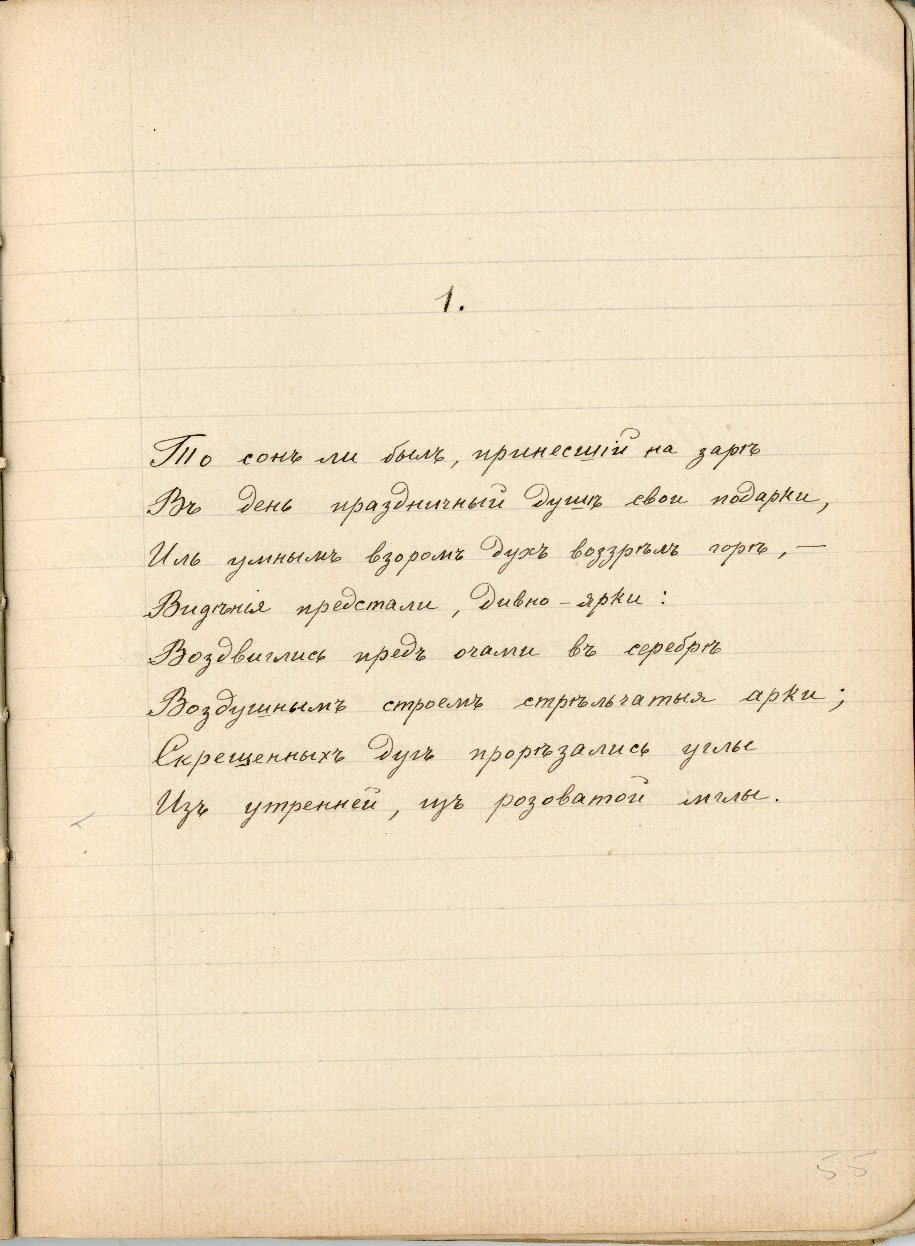 1.
То сонъ ли былъ, принесшій на зарѣ
Въ день праздничный душѣ свои подарки,
Иль умнымъ взоромъ духъ воззрѣлъ горѣ, —
Видѣнія предстали, дивно-ярки:
Воздвиглись предъ очами въ серебрѣ
Воздушнымъ строемъ стрѣльчатыя арки;
Скрещенныхъ дугъ прорѣзались углы
Изъ утренней, изъ розоватой мглы.
55